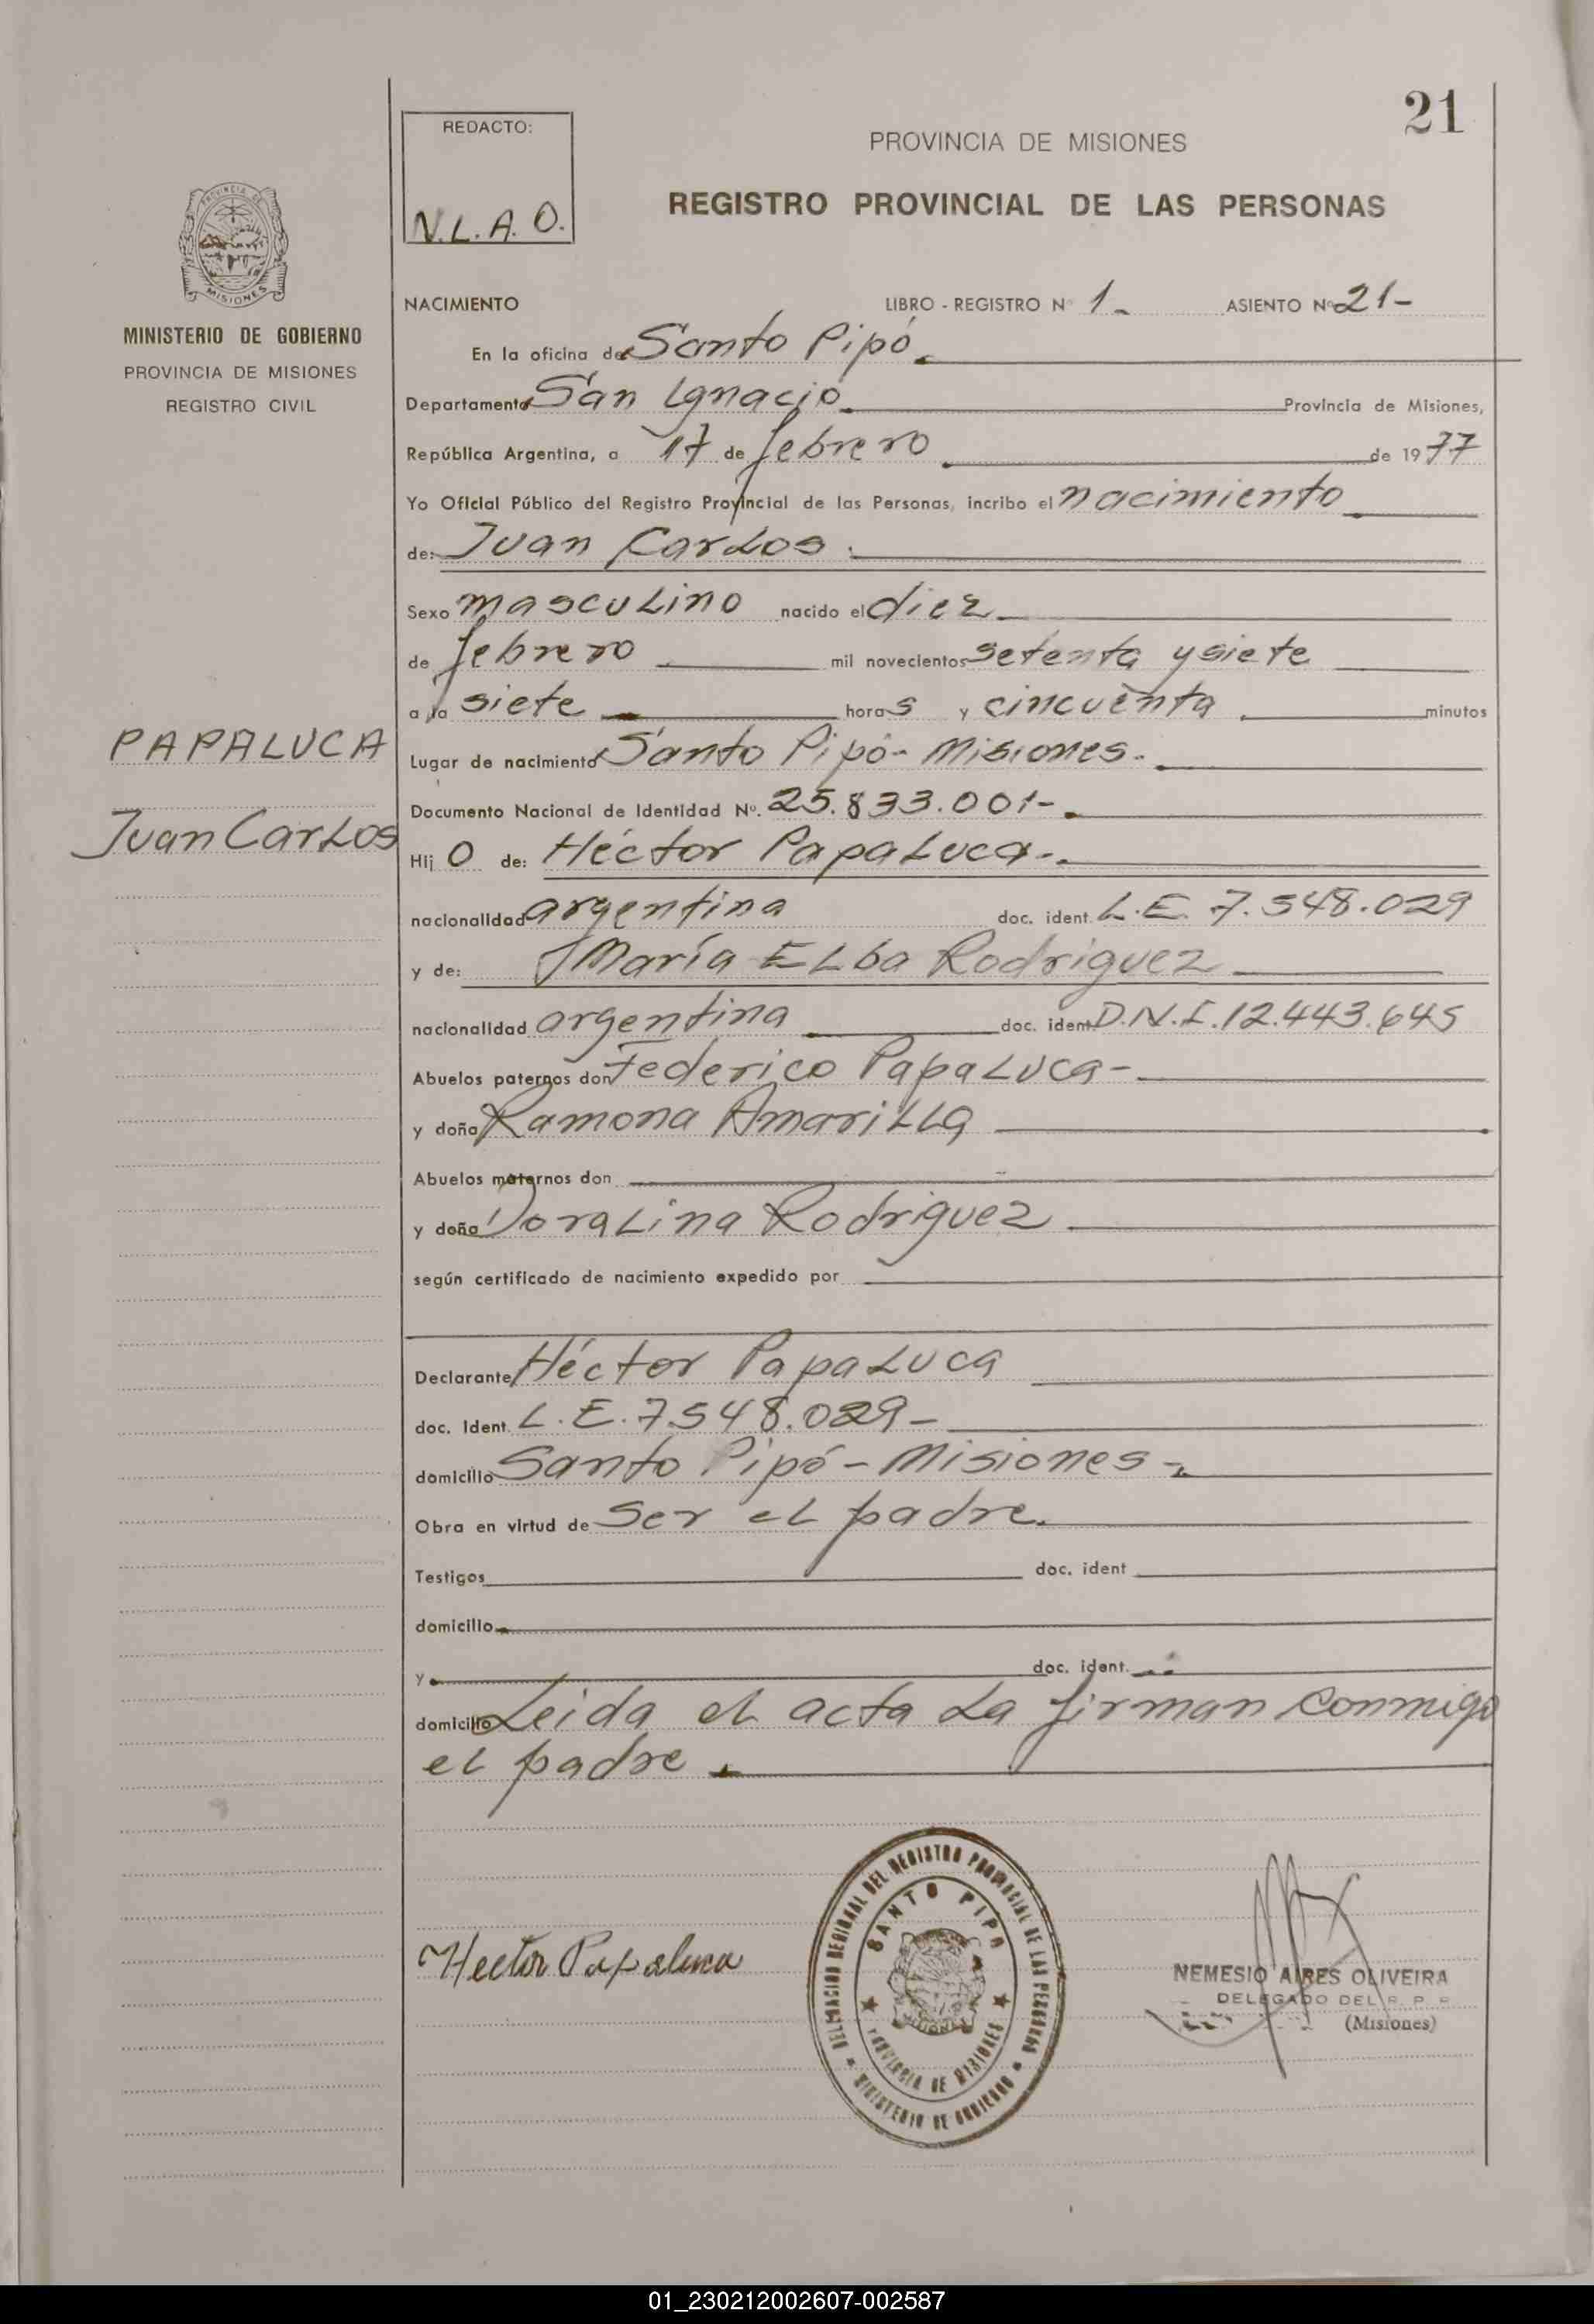 21
REDACTO:
N.L.A.O.
PROVINCIA DE MISIONES
REGISTRO PROVINCIAL DE LAS PERSONAS
PROVINCIA DE
MISIONES
MINISTERIO DE GOBIERNO
PROVINCIA DE MISIONES
REGISTRO CIVIL
PAPALUCA
Juan Carlos
NACIMIENTO LIBRO - REGISTRO Nº 1- ASIENTO Nº 21-
En la oficina de Santo Pipó.
Departamento San Ignacio Provincia de Misiones,
República Argentina, a 17 de febrero de 1977
Yo Oficial Público del Registro Provincial de las Personas, incribo el nacimiento
de: Juan Carlos.
Sexo masculino nacido el diez
de febrero mil novecientos setenta y siete
a la siete horas y cincuenta minutos
Lugar de nacimiento Santo Pipó - Misiones.
Documento Nacional de Identidad Nº. 25.833.001-
Hijo de: Héctor Papaluca-.
nacionalidad argentina doc. ident. L.E. 7.548.029
y de: María Elba Rodriguez
nacionalidad argentina doc. ident. D.N.I. 12.443.645
Abuelos paternos don Federico Papaluca-
y doña Ramona Amarilla
Abuelos maternos don
y doña Doralina Rodriguez
según certificado de nacimiento expedido por
Declarante Héctor Papaluca
doc. Ident. L.E. 7.548.029-
domicilio Santo Pipó - Misiones-
Obra en virtud de ser el padre.
Testigos doc. ident
domicilio
y doc. ident.
domicilio Leida el acta la firman conmigo
el padre.
Hector Papaluca
DELEGACION REGIONAL DEL REGISTRO PROVINCIAL DE LAS PERSONAS
MINISTERIO DE GOBIERNO
SANTO PIPO
PROVINCIA DE MISIONES
NEMESIO AIRES OLIVEIRA
DELEGADO DEL R. P. P.
(Misiones)
01_230212002607-002587